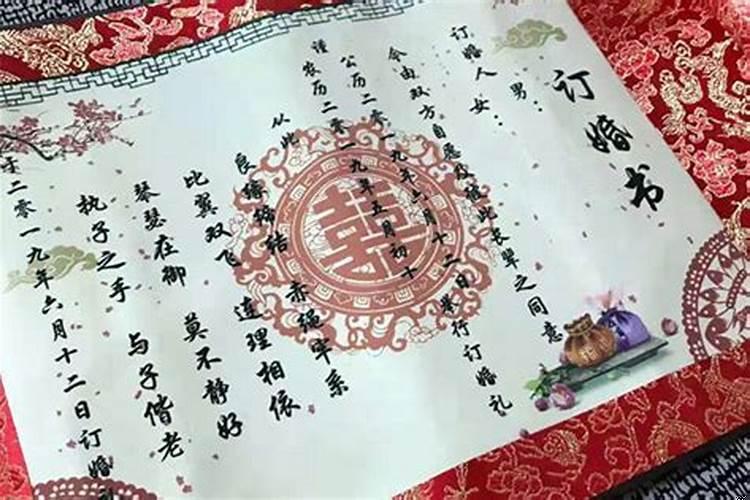 订婚书
订婚人 男：
女：
今由双方自愿及征彼此长辈之同意
公历二零一九年六月十二日举行订婚礼
谨农历二零一九年五月初十
从此 赤绳牢系
良缘缔结 连理相依
比翼双飞 莫不静好
琴瑟在御 与子偕老
执子之手
于二零一九年六月十二日订婚